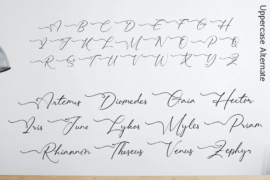 A B C D E F G H
I J K L M N O P Q
R S T U V W X Y Z
Artemis Diomedes Gaia Hector
Iris June Lykos Myles Priam
Rhiannon Theseus Venus Zephyr
Uppercase Alternate